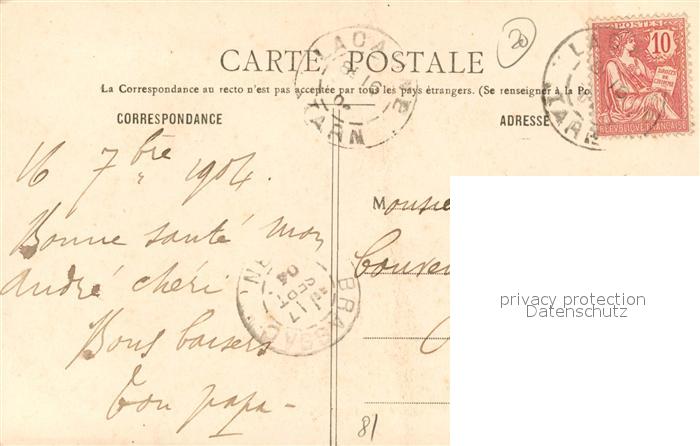 20
CARTE POSTALE
La Correspondance au recto n'est pas acceptée par tous les pays étrangers. (Se renseigner à la Po
CORRESPONDANCE
ADRESSE
POSTES
10
DROITS DE L'HOMME
REPUBLIQUE FRANÇAISE
LACAUNE
TARN
16
LACAUNE
TARN
16 7bre 1904.
Bonne santé mon
André chéri -
Bons baisers
Ton papa -
BRASSAC
TARN
17
SEPT
04
Monsie
Couven
privacy protection
Datenschutz
81